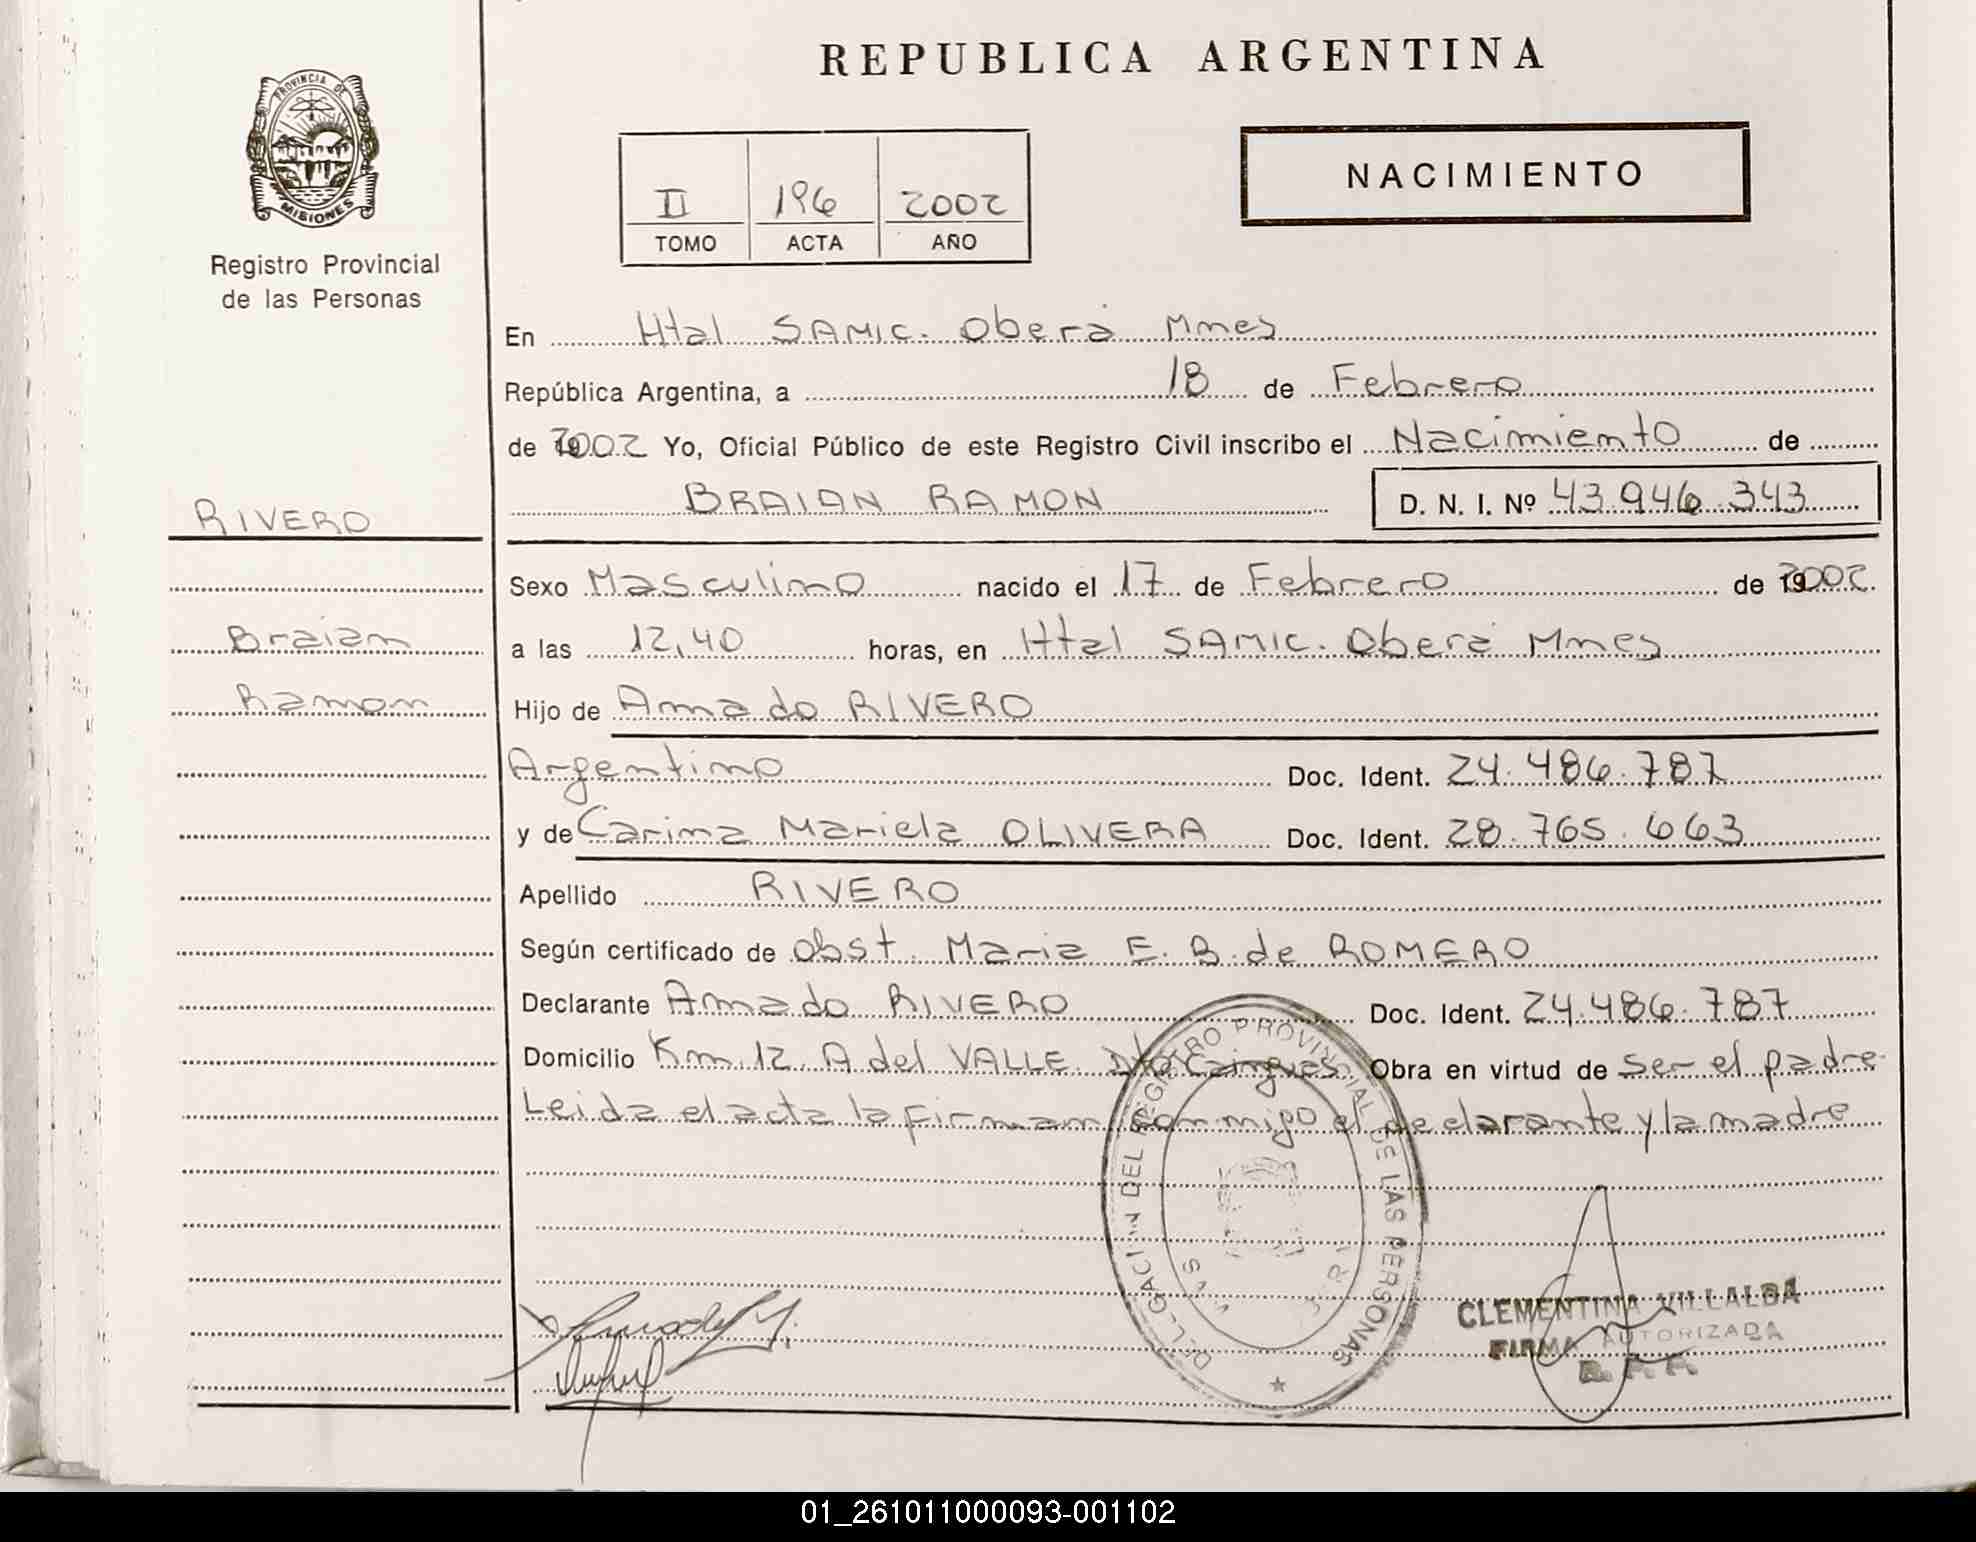 REPUBLICA ARGENTINA
PROVINCIA DE
MISIONES
Registro Provincial
de las Personas
NACIMIENTO
II 196 2002
TOMO ACTA AÑO
En Htal SAMIC. Oberá Mnes
República Argentina, a 18 de Febrero
de 2002 Yo, Oficial Público de este Registro Civil inscribo el Nacimiento de
BRAIAN RAMON D. N. I. Nº 43.946.343
RIVERO
Braian
Ramon
Sexo Masculino nacido el 17 de Febrero de 2002.
a las 12,40 horas, en Htal SAMIC. Oberá Mnes
Hijo de Amado RIVERO
Argentino Doc. Ident. 24.486.787
y de Carina Mariela OLIVERA Doc. Ident. 28.765.663
Apellido RIVERO
Según certificado de Obst. Maria E. B. de ROMERO
Declarante Amado RIVERO Doc. Ident. 24.486.787
Domicilio Km 12. A del VALLE Dto Cainguas Obra en virtud de ser el padre.
Leida el acta la firman conmigo el declarante y la madre
REGISTRO PROVINCIAL DE LAS PERSONAS
CLEMENTINA VILLALBA
FIRMA AUTORIZADA
01_261011000093-001102